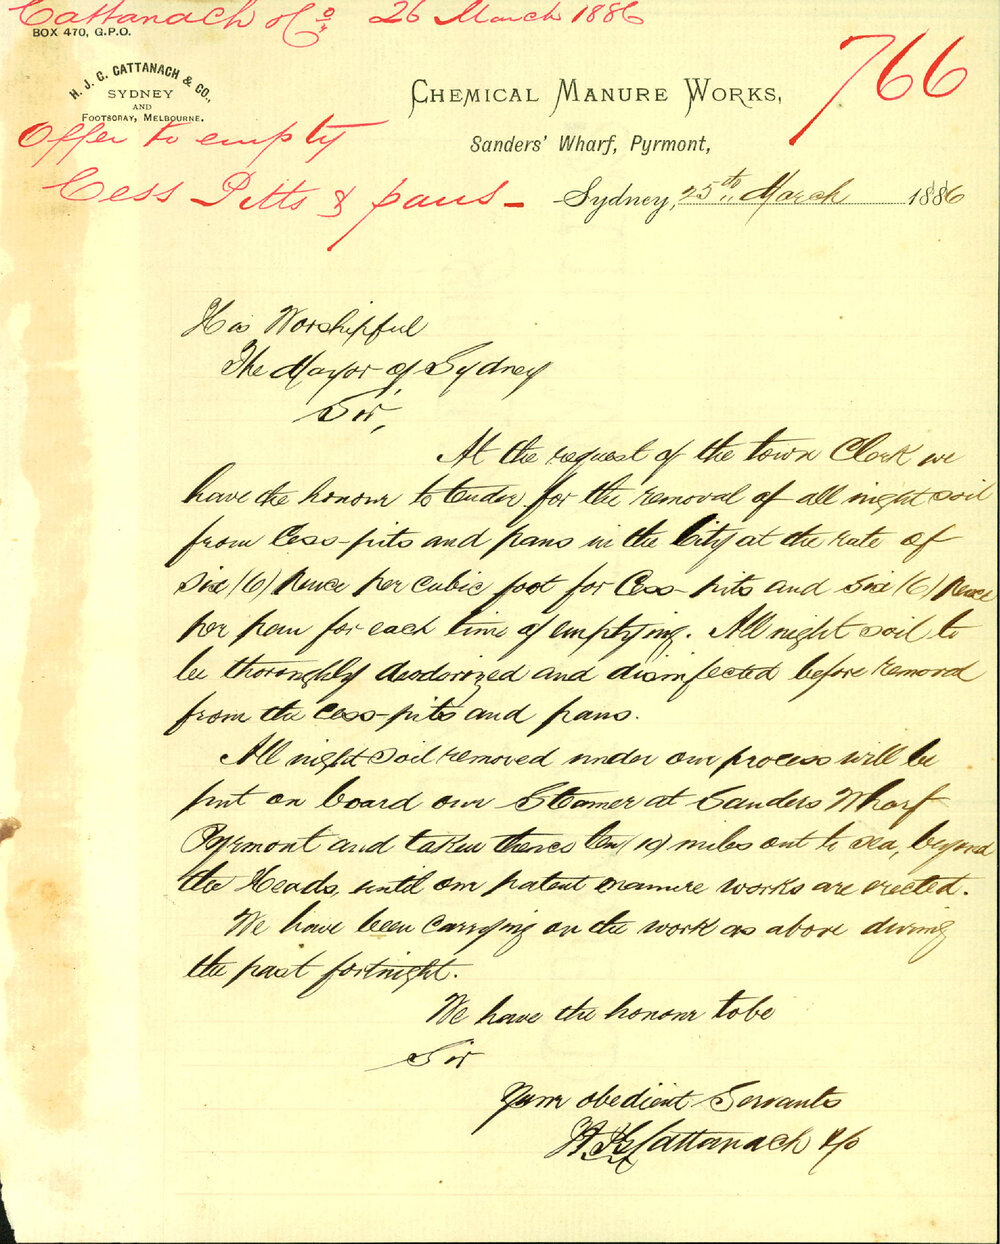 Cattanach & Co. 26 March 1886
BOX 470, G.P.O.
766
H. J. C. CATTANACH & CO.,
SYDNEY
AND
FOOTSCRAY, MELBOURNE.
CHEMICAL MANURE WORKS,
Sanders' Wharf, Pyrmont,
Offer to empty
Cess Pitts & pans -
Sydney, 25th March 1886
His Worshipful
The Mayor of Sydney
Sir,
At the request of the Town Clerk we
have the honour to tender for the removal of all night soil
from Cess-pits and pans in the City at the rate of
six (6) pence per cubic foot for Cess-pits and six (6) pence
per pan for each time of emptying. All night soil to
be thoroughly deodorized and disinfected before removal
from the cess-pits and pans.
All night soil removed under our process will be
put on board our Steamer at Sanders Wharf
Pyrmont and taken thence ten (10) miles out to sea, beyond
the Heads, until our patent manure works are erected.
We have been carrying on the work as above during
the past fortnight.
We have the honour to be
Sir
Your obedient Servants
H. J. C. Cattanach & Co